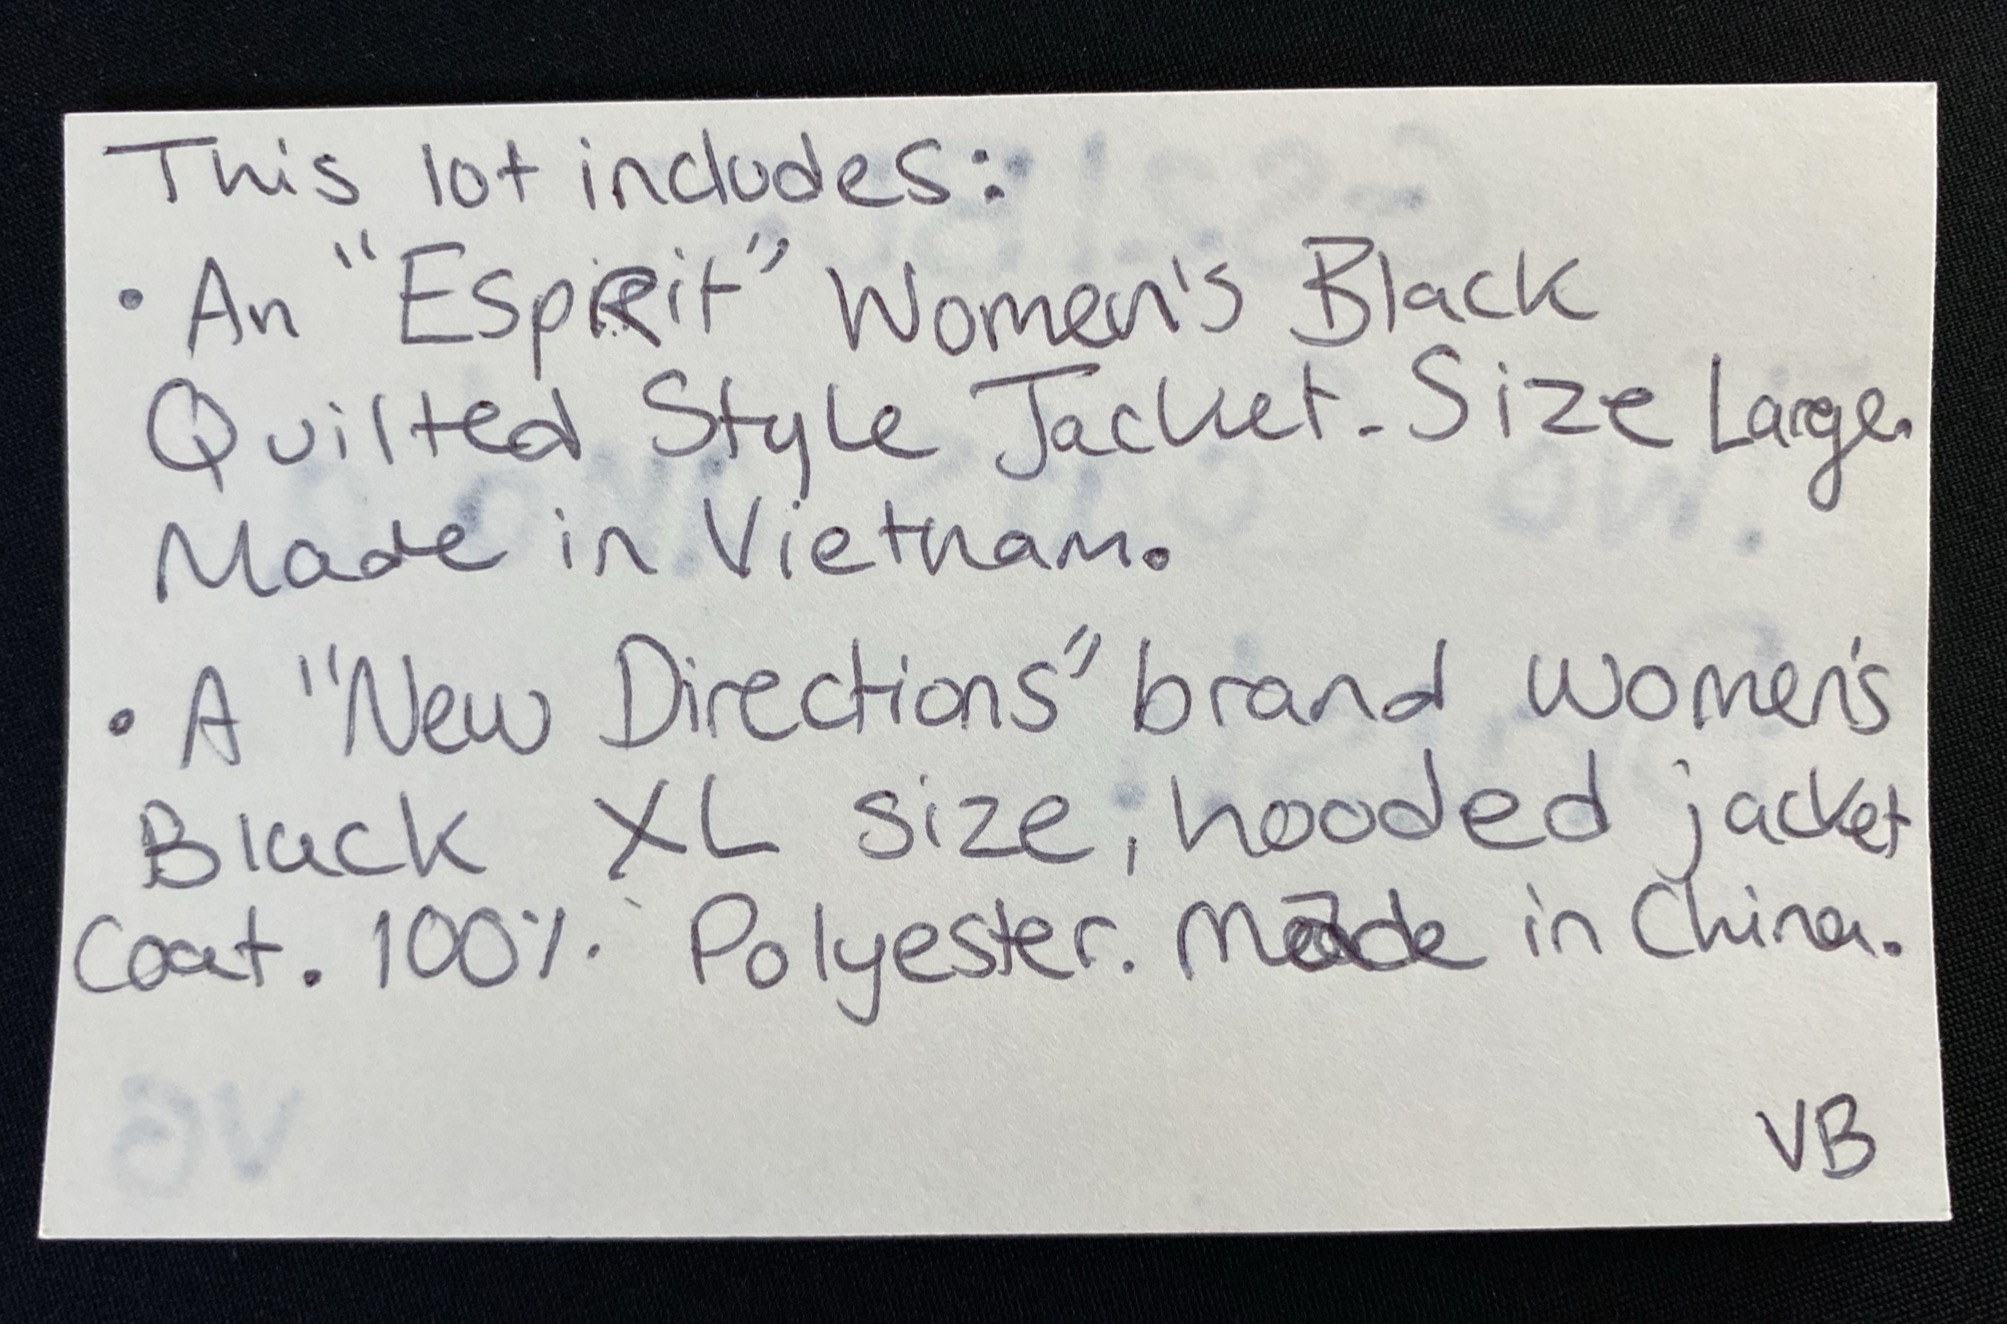 This lot includes:
• An "EspRit" Women's Black
Quilted Style Jacket. Size Large.
Made in Vietnam.
• A "New Directions" brand women's
Black XL size, hooded jacket
Coat. 100% Polyester. Made in China.
VB